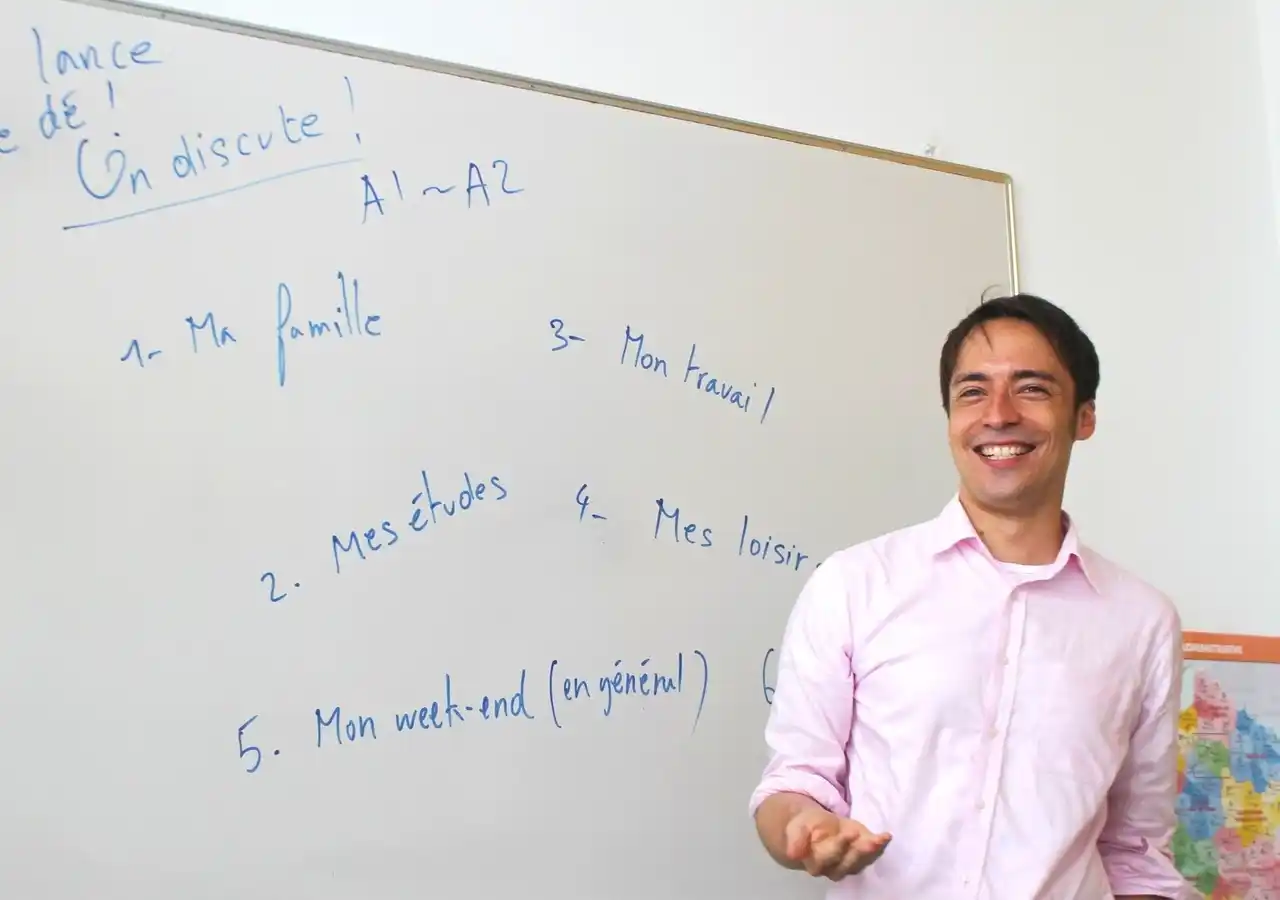 lance
dé !
On discute !
A1 ~ A2
1- Ma famille
2. Mes études
3- Mon travail
4- Mes loisir
5. Mon week-end (en général)
6